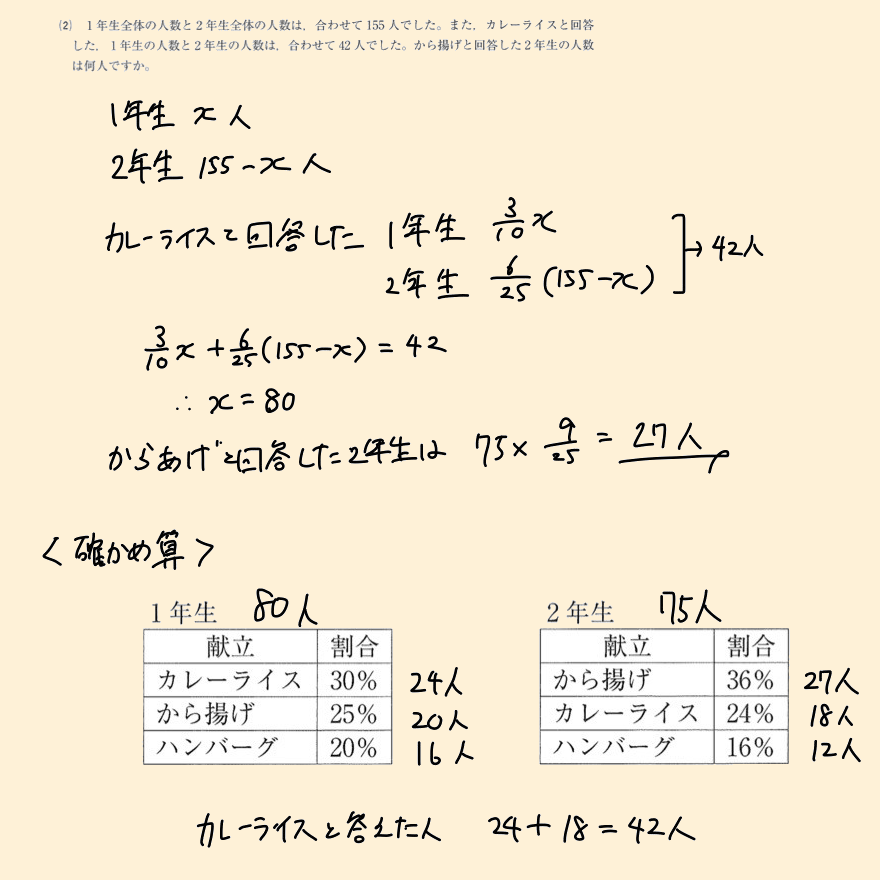 (2) 1年生全体の人数と2年生全体の人数は，合わせて155人でした。また，カレーライスと回答
した，1年生の人数と2年生の人数は，合わせて42人でした。から揚げと回答した2年生の人数
は何人ですか。
1年生 x人
2年生 155-x人
カレーライスと回答した 1年生 3/10 x
2年生 6/25 (155-x) → 42人
3/10 x + 6/25 (155-x) = 42
∴ x = 80
からあげと回答した2年生は 75 × 9/25 = 27人
<確かめ算>
1年生 80人
献立 割合
カレーライス 30% 24人
から揚げ 25% 20人
ハンバーグ 20% 16人
2年生 75人
献立 割合
から揚げ 36% 27人
カレーライス 24% 18人
ハンバーグ 16% 12人
カレーライスと答えた人 24+18=42人